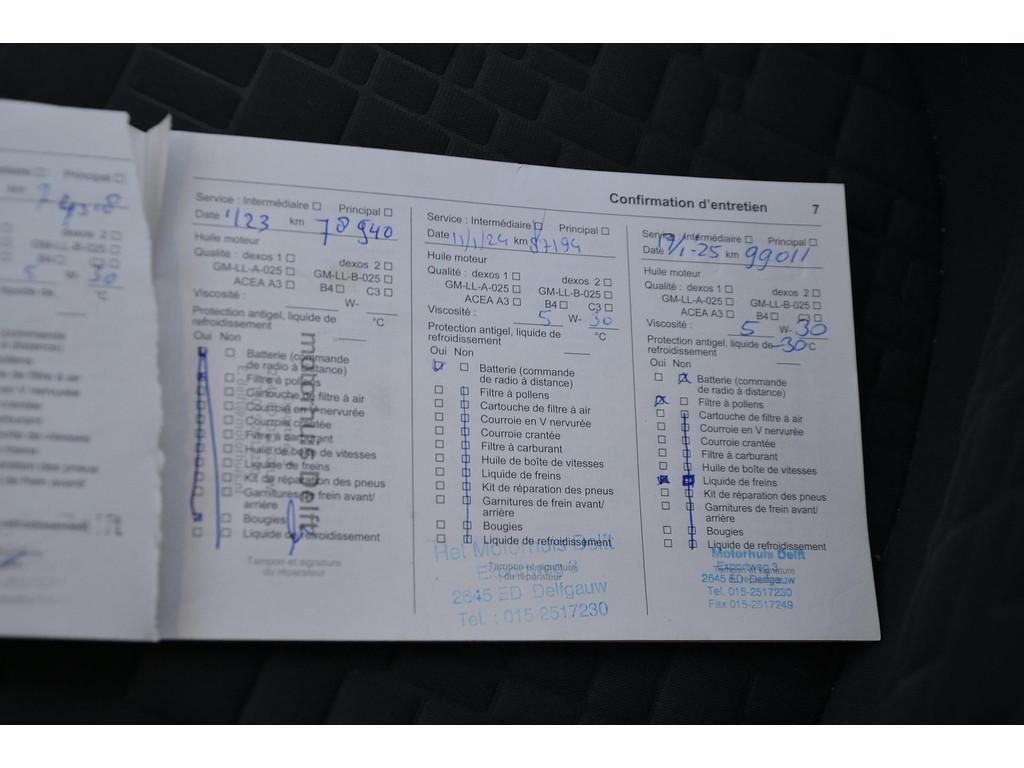 Confirmation d'entretien 7
Service : Intermédiaire Principal
Date 1/23 km 78940
Huile moteur
Qualité : dexos 1 dexos 2
GM-LL-A-025 GM-LL-B-025
ACEA A3 B4 C3
Viscosité : W-
Protection antigel, liquide de
refroidissement °C
Oui Non
Batterie (commande
de radio à distance)
Filtre à pollens
Cartouche de filtre à air
Courroie en V nervurée
Courroie crantée
Filtre à carburant
Huile de boîte de vitesses
Liquide de freins
Kit de réparation des pneus
Garnitures de frein avant/
arrière
Bougies
Liquide de refroidissement
Tampon et signature
du réparateur
Service : Intermédiaire Principal
Date 11/1/24 km 87194
Huile moteur
Qualité : dexos 1 dexos 2
GM-LL-A-025 GM-LL-B-025
ACEA A3 B4 C3
Viscosité : 5 W- 30
Protection antigel, liquide de
refroidissement °C
Oui Non
Batterie (commande
de radio à distance)
Filtre à pollens
Cartouche de filtre à air
Courroie en V nervurée
Courroie crantée
Filtre à carburant
Huile de boîte de vitesses
Liquide de freins
Kit de réparation des pneus
Garnitures de frein avant/
arrière
Bougies
Liquide de refroidissement
Het Motorhuis Delft
Tampon et signature
du réparateur
2645 ED Delfgauw
Tel. : 015-2517230
Service : Intermédiaire Principal
Date 19/1-25 km 99011
Huile moteur
Qualité : dexos 1 dexos 2
GM-LL-A-025 GM-LL-B-025
ACEA A3 B4 C3
Viscosité : 5 W- 30
Protection antigel, liquide de
refroidissement -30°C
Oui Non
Batterie (commande
de radio à distance)
Filtre à pollens
Cartouche de filtre à air
Courroie en V nervurée
Courroie crantée
Filtre à carburant
Huile de boîte de vitesses
Liquide de freins
Kit de réparation des pneus
Garnitures de frein avant/
arrière
Bougies
Liquide de refroidissement
Motorhuis Delft
Exportweg 3
Tampon et signature
2645 ED Delfgauw
Tel. 015-2517230
Fax 015-2517249